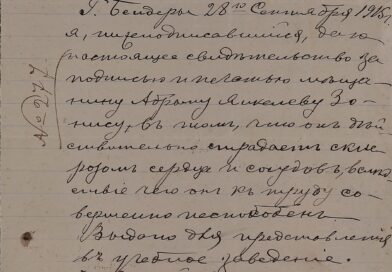 Г. Бендеры 28го Сентября 1915 г.
я, нижеподписавшийся, даю
настоящее свидѣтельство за
подписью и печатью мѣща
нину Абраму Янкелеву Зо-
нису, въ томъ, что онъ дѣй
ствительно страдаетъ скле
розомъ сердца и сосудовъ, вслѣд
ствіе чего онъ къ труду со-
вершенно неспособенъ.
Выдано для представленія
въ учебное заведеніе.
№ 277